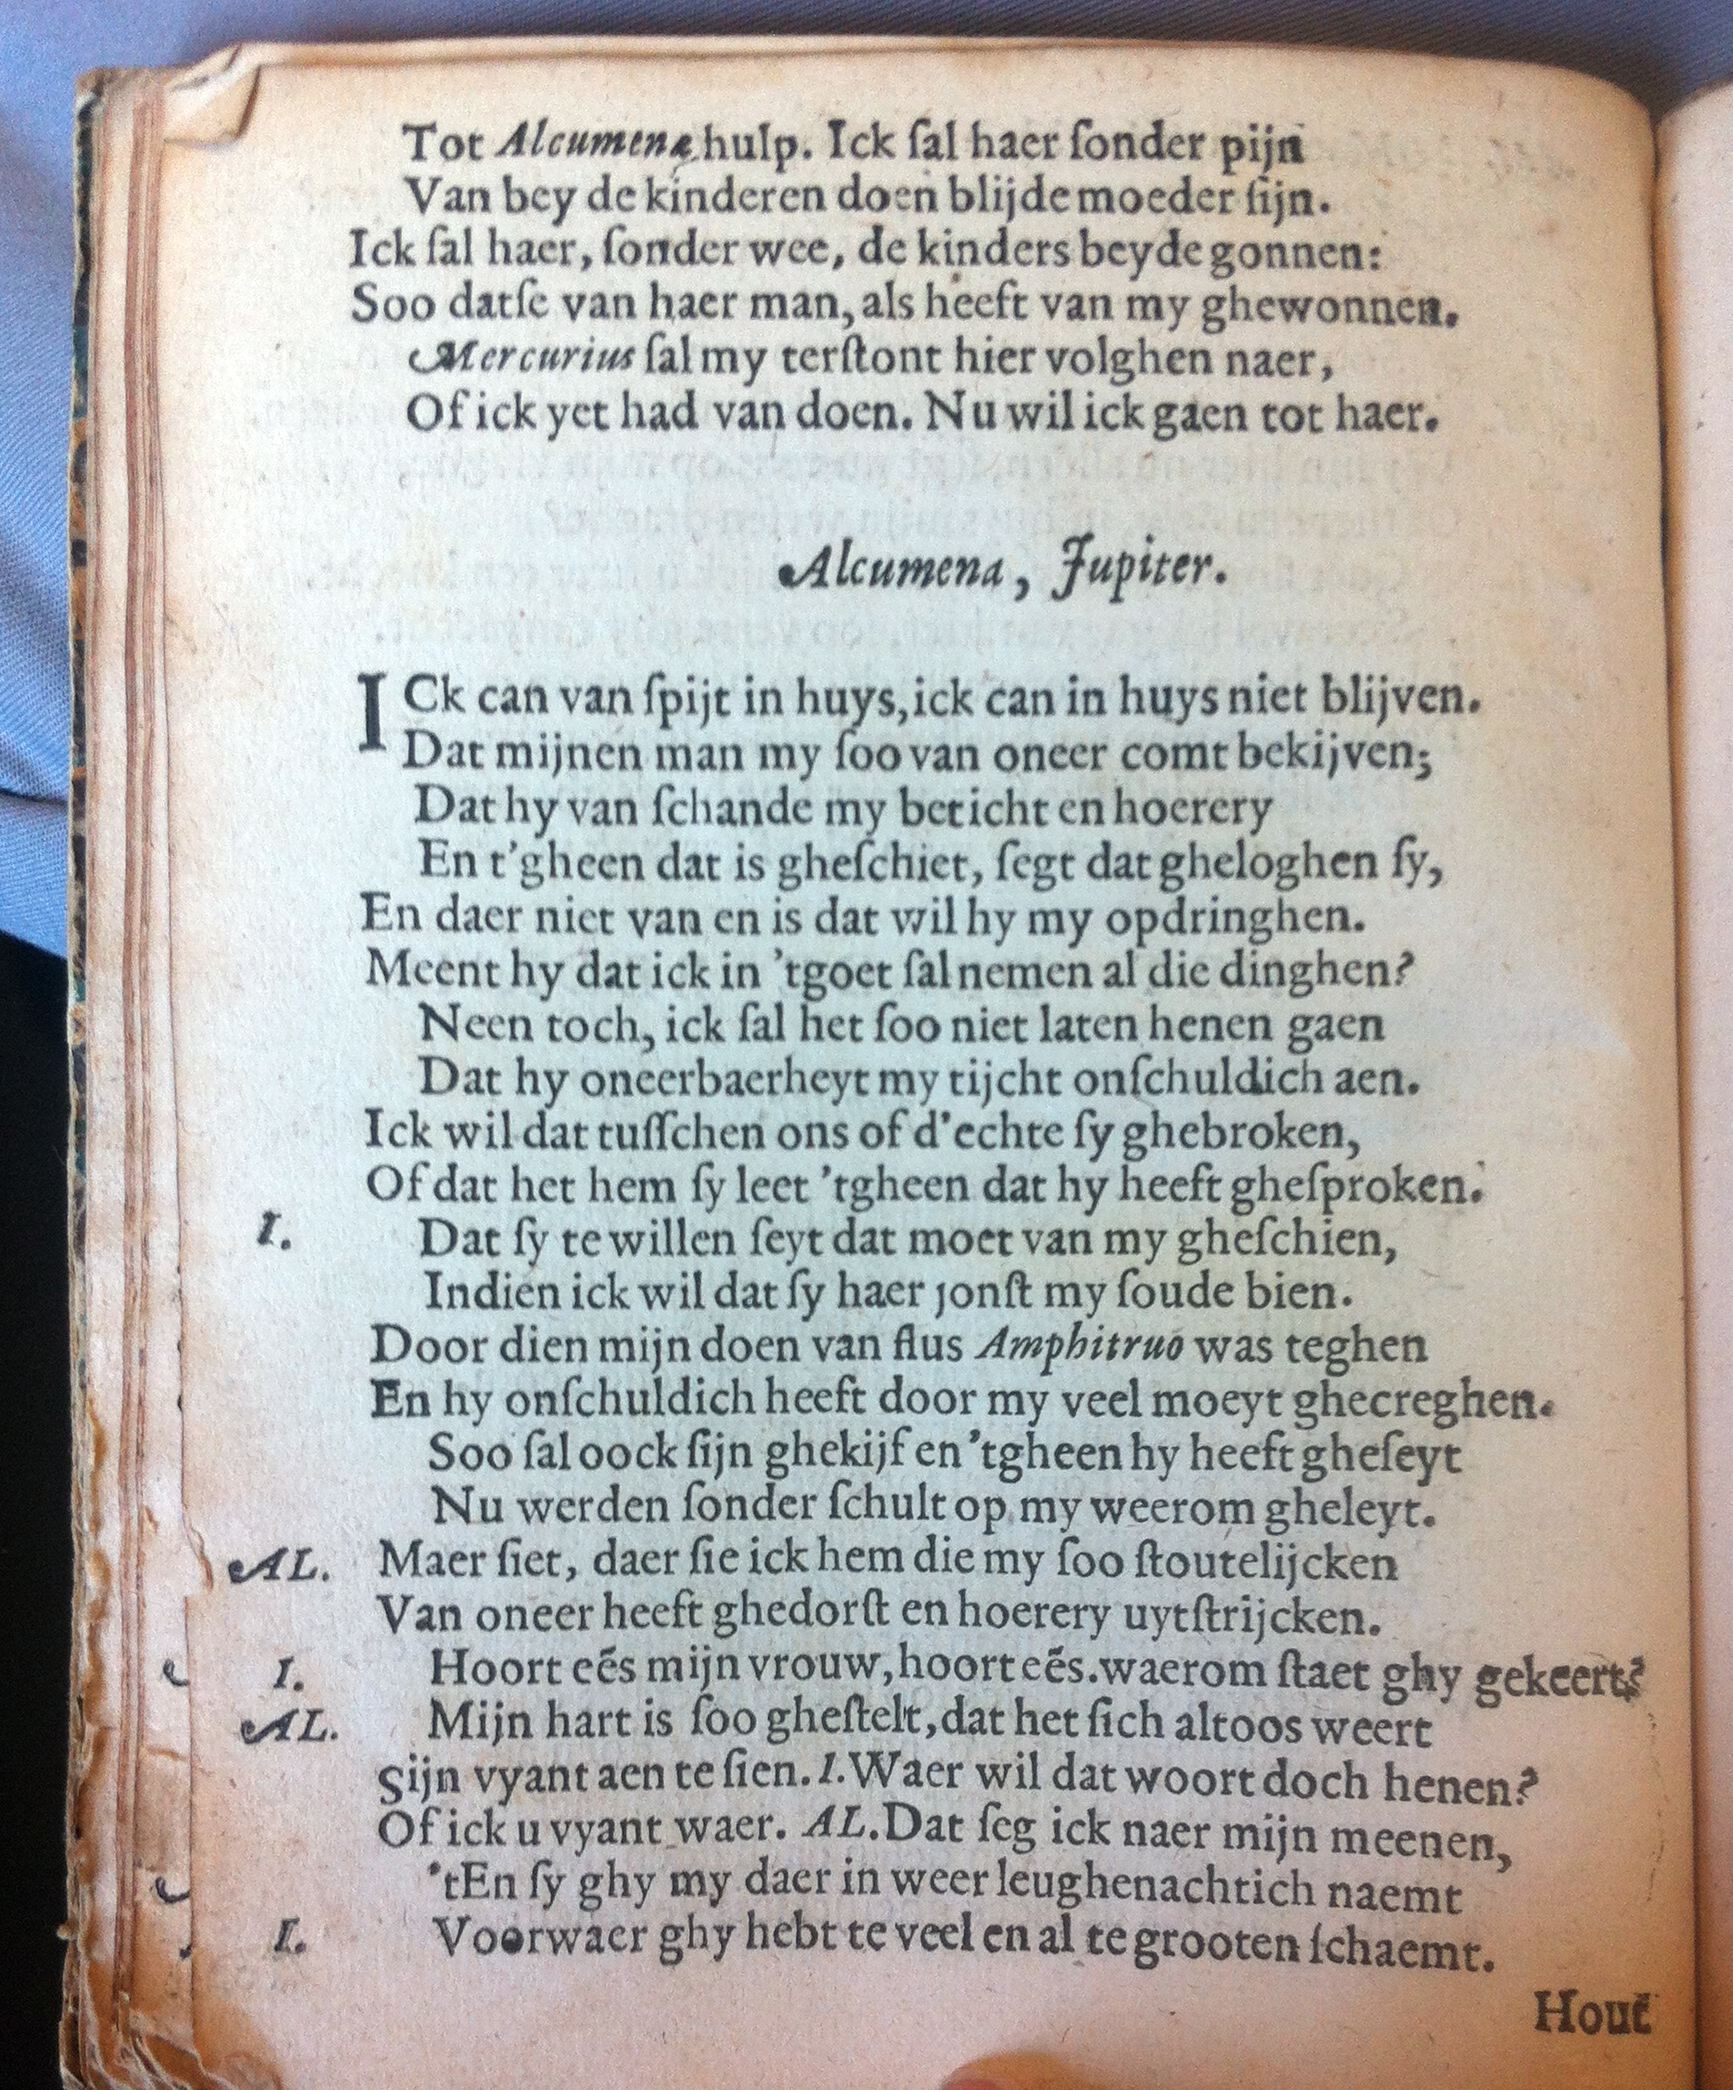 Tot Alcumenæ hulp. Ick ſal haer ſonder pijn
Van bey de kinderen doen blijde moeder ſijn.
Ick ſal haer, ſonder wee, de kinders beyde gonnen:
Soo datſe van haer man, als heeft van my ghewonnen.
Mercurius ſal my terſtont hier volghen naer,
Of ick yet had van doen. Nu wil ick gaen tot haer.
Alcumena, Jupiter.
ICk can van ſpijt in huys, ick can in huys niet blijven.
Dat mijnen man my ſoo van oneer comt bekijven;
Dat hy van ſchande my beticht en hoerery
En t'gheen dat is gheſchiet, ſegt dat gheloghen ſy,
En daer niet van en is dat wil hy my opdringhen.
Meent hy dat ick in 'tgoet ſal nemen al die dinghen?
Neen toch, ick ſal het ſoo niet laten henen gaen
Dat hy oneerbaerheyt my tijcht onſchuldich aen.
Ick wil dat tuſſchen ons of d'echte ſy ghebroken,
Of dat het hem ſy leet 'tgheen dat hy heeft gheſproken.
I. Dat ſy te willen ſeyt dat moet van my gheſchien,
Indien ick wil dat ſy haer jonſt my ſoude bien.
Door dien mijn doen van flus Amphitruo was teghen
En hy onſchuldich heeft door my veel moeyt ghecreghen.
Soo ſal oock ſijn ghekijf en 'tgheen hy heeft gheſeyt
Nu werden ſonder ſchult op my weerom gheleyt.
AL. Maer ſiet, daer ſie ick hem die my ſoo ſtoutelijcken
Van oneer heeft ghedorſt en hoerery uytſtrijcken.
I. Hoort eẽs mijn vrouw, hoort eẽs. waerom ſtaet ghy gekeert?
AL. Mijn hart is ſoo gheſtelt, dat het ſich altoos weert
Sijn vyant aen te ſien. I. Waer wil dat woort doch henen?
Of ick u vyant waer. AL. Dat ſeg ick naer mijn meenen,
'tEn ſy ghy my daer in weer leughenachtich naemt
I. Voorwaer ghy hebt te veel en al te grooten ſchaemt.
Hout